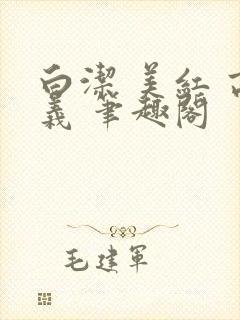 白潔 美紅 高
義 筆趣閣
毛建軍